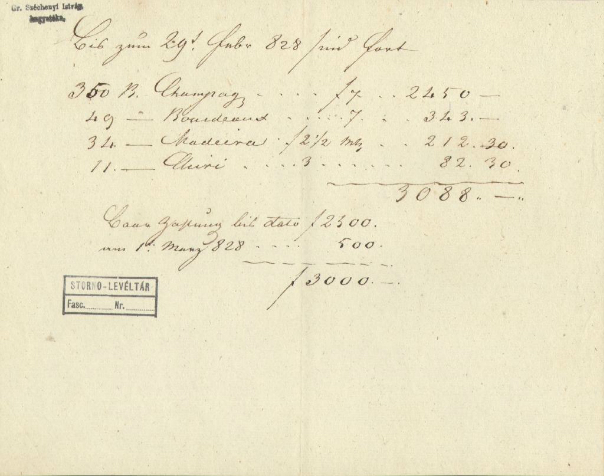 Gr. Széchenyi István
hagyatéka.
Bis zum 29t. Febr 828 sind fort
350 B. Champag . . . . f 7 . . 2450 —
49 — Bourdeaux . . . . . 7. . . 343. —
34 — Madeira . f 2 1/2 . . 212. 30.
11. — . . . 3 . . . . . . 82. 30.
3088. —.
Baar Zahlung bis dato f 2500.
am 1t. Merz 828 . . . . 500.
f 3000. —
STORNO-LEVÉLTÁR
Fasc.______ Nr.______